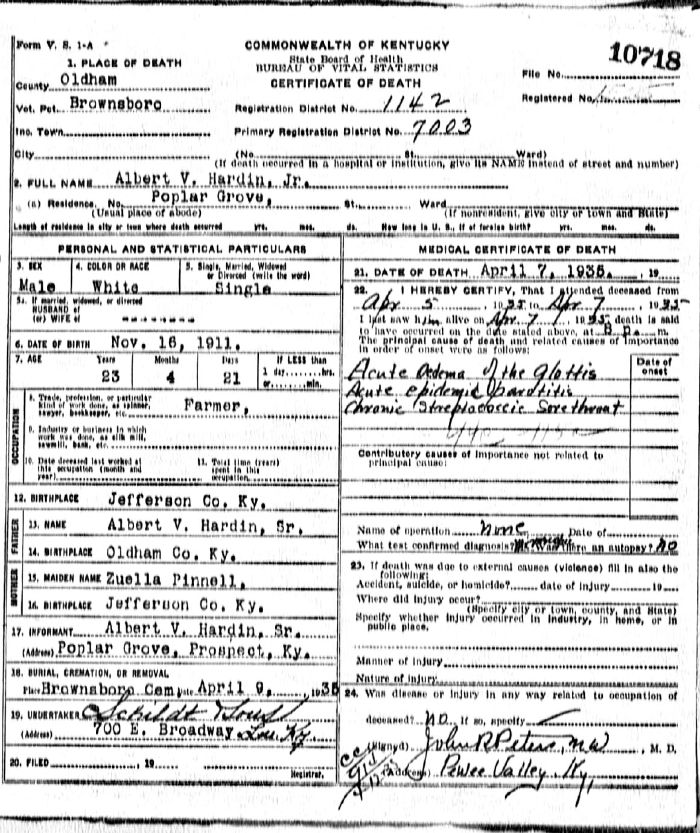 Form V. S. 1-A
COMMONWEALTH OF KENTUCKY
State Board of Health
BUREAU OF VITAL STATISTICS
CERTIFICATE OF DEATH
10718
File No.
Registered No.
1. PLACE OF DEATH
County Oldham
Vot. Pct. Brownsboro
Registration District No. 1142
Inc. Town
Primary Registration District No. 7003
City (No. St. Ward)
(If death occurred in a hospital or institution, give its NAME instead of street and number)
2. FULL NAME Albert V. Hardin, Jr.
(a) Residence. No. Poplar Grove, St. Ward
(Usual place of abode) (If nonresident, give city or town and State)
Length of residence in city or town where death occurred yrs. mos. ds. How long in U. S., if of foreign birth? yrs. mos. ds.
PERSONAL AND STATISTICAL PARTICULARS
3. SEX 4. COLOR OR RACE 5. Single, Married, Widowed
or Divorced (write the word)
Male White Single
5a. If married, widowed, or divorced
HUSBAND of
(or) WIFE of
6. DATE OF BIRTH Nov. 16, 1911.
7. AGE Years Months Days If LESS than
23 4 21 1 day, hrs.
or min.
OCCUPATION
8. Trade, profession, or particular
kind of work done, as spinner,
sawyer, bookkeeper, etc. Farmer,
9. Industry or business in which
work was done, as silk mill,
sawmill, bank, etc.
10. Date deceased last worked at
this occupation (month and
year)
11. Total time (years)
spent in this
occupation
12. BIRTHPLACE Jefferson Co. Ky.
FATHER
13. NAME Albert V. Hardin, Sr.
14. BIRTHPLACE Oldham Co. Ky.
MOTHER
15. MAIDEN NAME Zuella Pinnell,
16. BIRTHPLACE Jefferson Co. Ky.
17. INFORMANT Albert V. Hardin, Sr.
(Address) Poplar Grove, Prospect, Ky.
18. BURIAL, CREMATION, OR REMOVAL
Place Brownsboro Cem Date April 9, 1935
19. UNDERTAKER Schildt
(Address) 700 E. Broadway Lou. Ky.
20. FILED 19
Registrar.
MEDICAL CERTIFICATE OF DEATH
21. DATE OF DEATH April 7, 1935. 19
22. I HEREBY CERTIFY, That I attended deceased from
Apr 5 1935 to Apr 7 1935
I last saw him alive on Apr 7 1935 death is said
to have occurred on the date stated above, at 8 p. m.
The principal cause of death and related causes of importance
in order of onset were as follows:
Date of
onset
Acute Oedema of the glottis
Acute epidemic parotitis
Chronic Streptococcic Sorethroat
Contributory causes of importance not related to
principal cause:
Name of operation none Date of
What test confirmed diagnosis? Was there an autopsy? no
23. If death was due to external causes (violence) fill in also the
following:
Accident, suicide, or homicide? date of injury 19
Where did injury occur?
(Specify city or town, county, and State)
Specify whether injury occurred in industry, in home, or in
public place.
Manner of injury
Nature of injury
24. Was disease or injury in any way related to occupation of
deceased? no If so, specify
(Signed) John R Peters, M. D.
(Address) Pewee Valley, Ky,